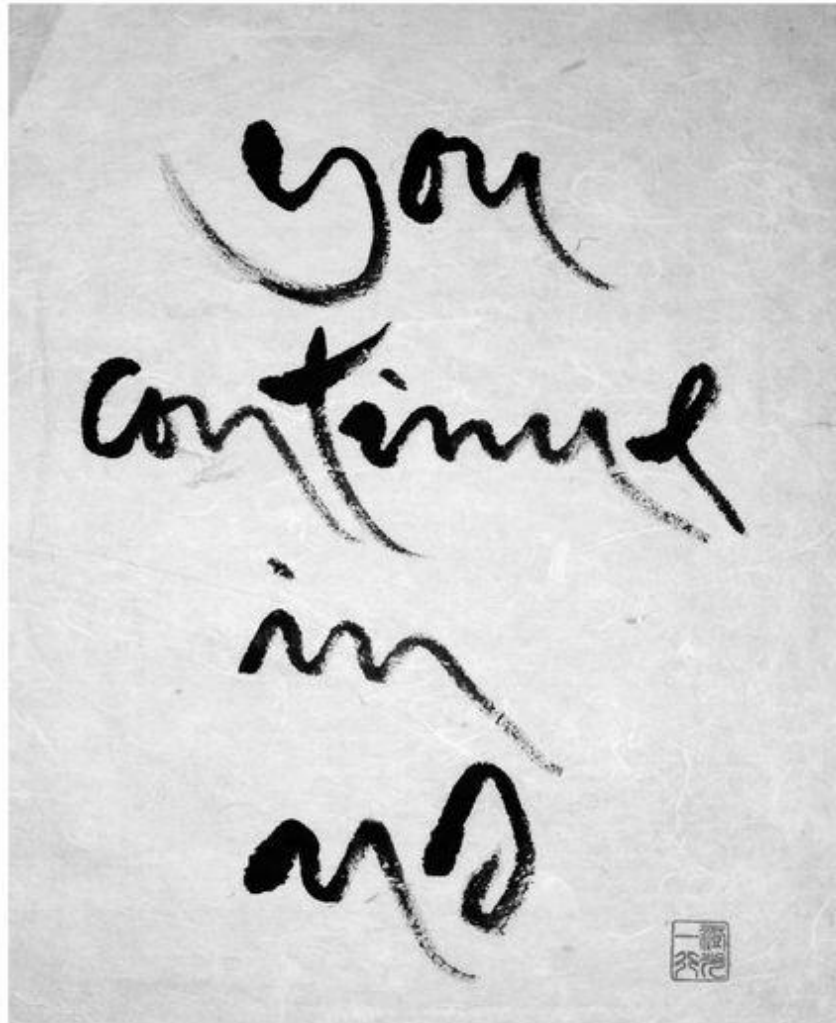 you
continue
in
us